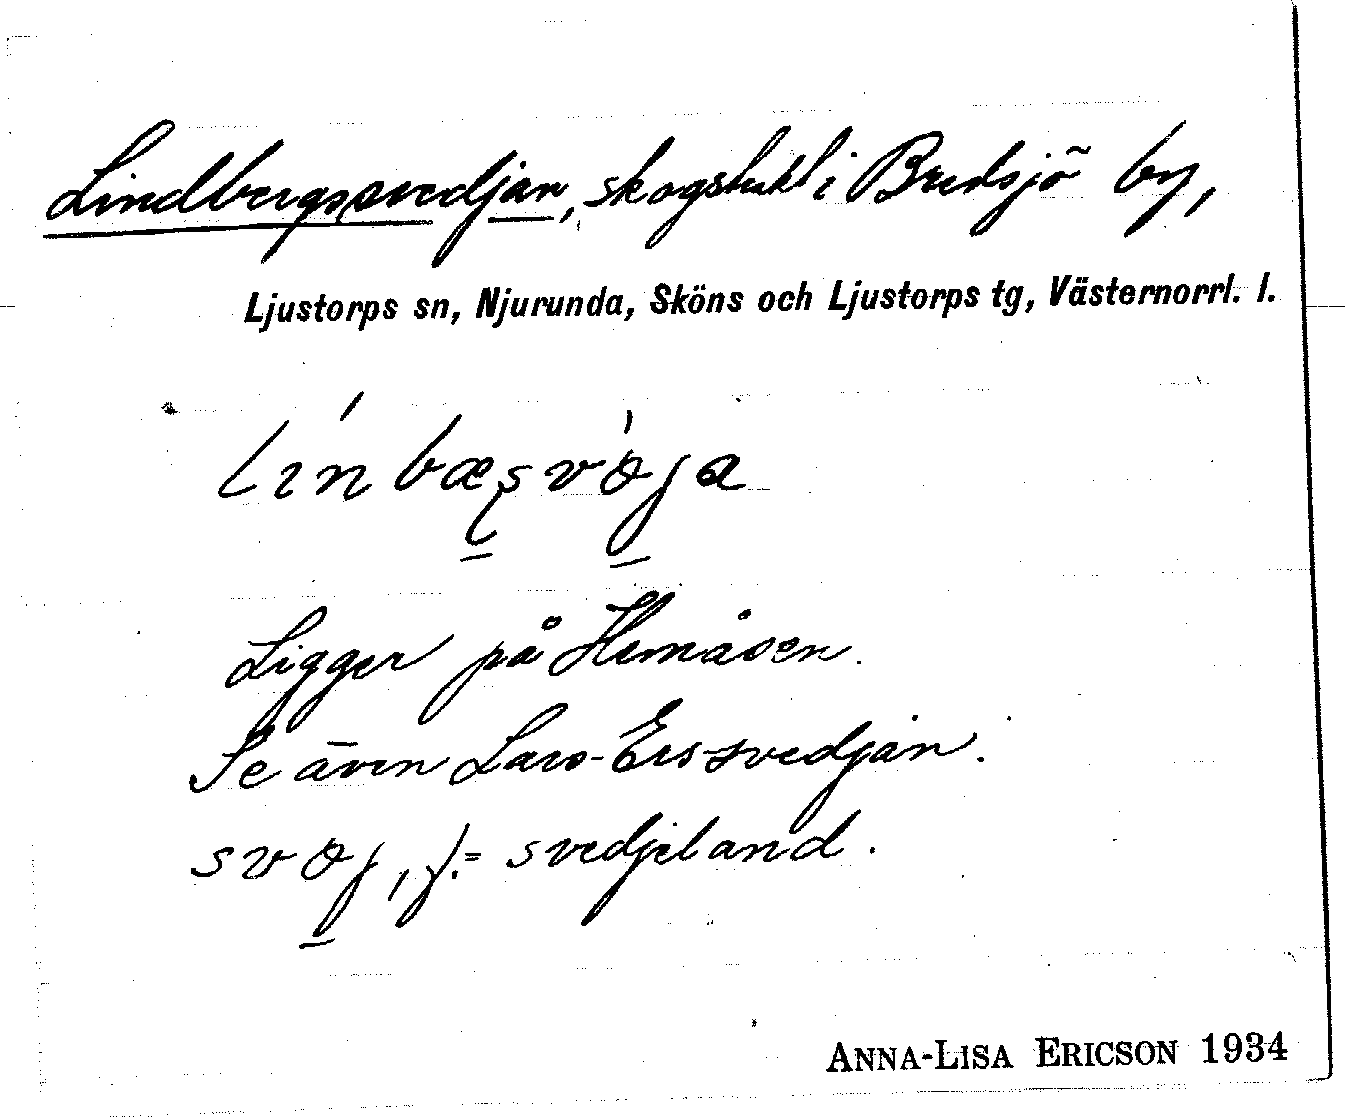 Lindbergssvedjan, skogstrakt i Bredsjö by,
Ljustorps sn, Njurunda, Sköns och Ljustorps tg, Västernorrl. l.
Ligger på Hemåsen.
Se även Lars-Ers-svedjan.
f. = svedjeland.
ANNA-LISA ERICSON 1934